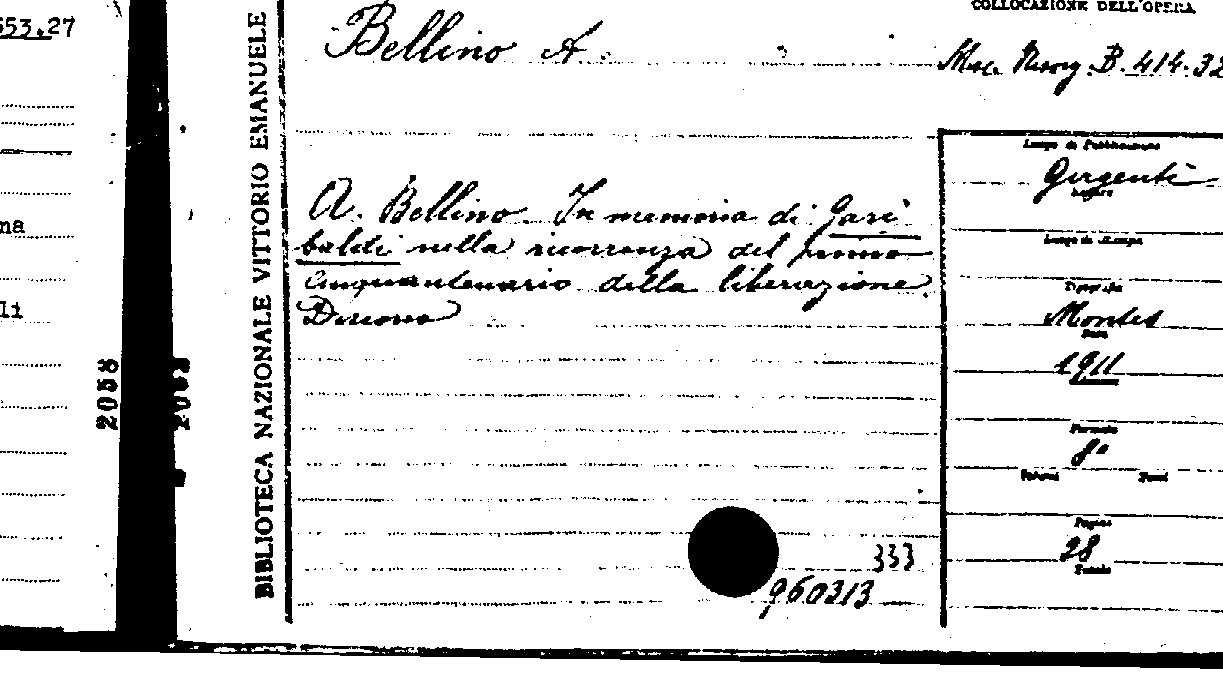 553.27
na
li
2058
2058
BIBLIOTECA NAZIONALE VITTORIO EMANUELE
Bellino A.
COLLOCAZIONE DELL'OPERA
Misc. Risorg. B. 414.32
A. Bellino. In memoria di Gari
baldi nella ricorrenza del primo
cinquantenario della liberazione.
Discorso
333
960313
Luogo di Pubblicazione
Girgenti
Editore
Luogo di Stampa
Tipografia
Montes
Data
1911
Formato
8°
Volumi Tomi
Pagine
28
Tavole